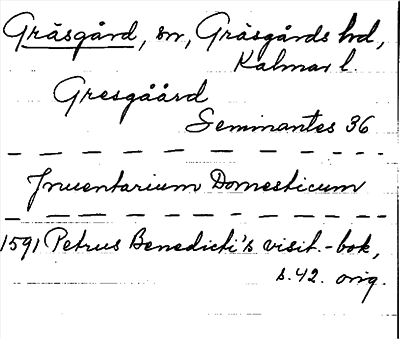 Gräsgård, sn, Gräsgårds hd,
Kalmar l.
Gresgåård
Seminantes 36
Inuentarium Domesticum
1591 Petrus Benedicti's visit.-bok,
s.42. orig.